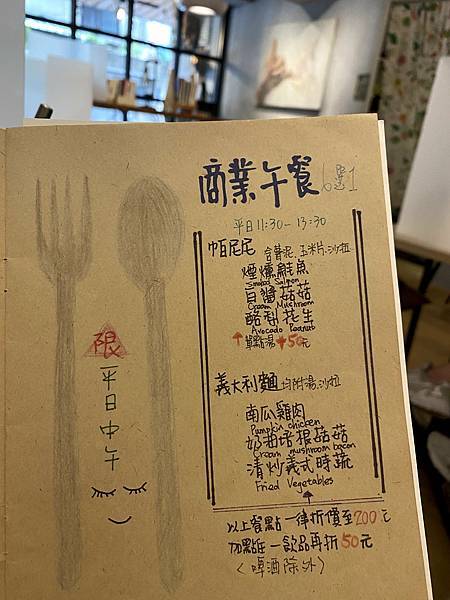 商業午餐 6選1
平日 11:30-13:30
帕尼尼 含薯泥.玉米片.沙拉
煙燻鮭魚
Smoked Salmon
白醬菇菇
Cream Mushroom
酪梨花生
Avocado Peanut
↑單點湯+50元
義大利麵 均附湯.沙拉
南瓜雞肉
Pumpkin chicken
奶油培根菇菇
Cream mushroom bacon
清炒義式時蔬
Fried Vegetables
以上餐點一律折價至200元
加點任一飲品再折50元
〈啤酒除外〉
限
平日中午